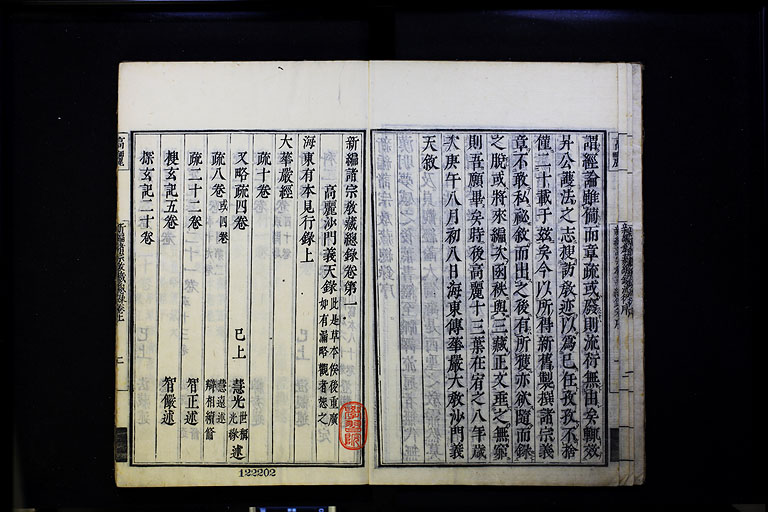 謂經論雖備而章疏或廢則流行無由矣輒效
昇公護法之志搜訪教迹以為己任孜孜不捨
僅二十載于玆矣今以所得新舊製撰諸宗義
章不敢私祕敘而出之後有所獲亦欲隨而錄
之脫或將來編次函秩與三藏正文垂之無窮
則吾願畢矣時後高麗十三葉在宥之八年歲
次庚午八月初八日海東傳華嚴大教沙門義
天敘
新編諸宗教藏總錄卷第一
高麗沙門義天錄 此是草本俟後重廣
如有漏略觀者恕之
海東有本見行錄上
大華嚴經
疏十卷
又略疏四卷 已上 慧光 世稱
光統 述
疏八卷 或四卷 慧遠述
辯相續修
疏二十二卷 智正述
搜玄記五卷 智儼述
探玄記二十卷
高麗
122202